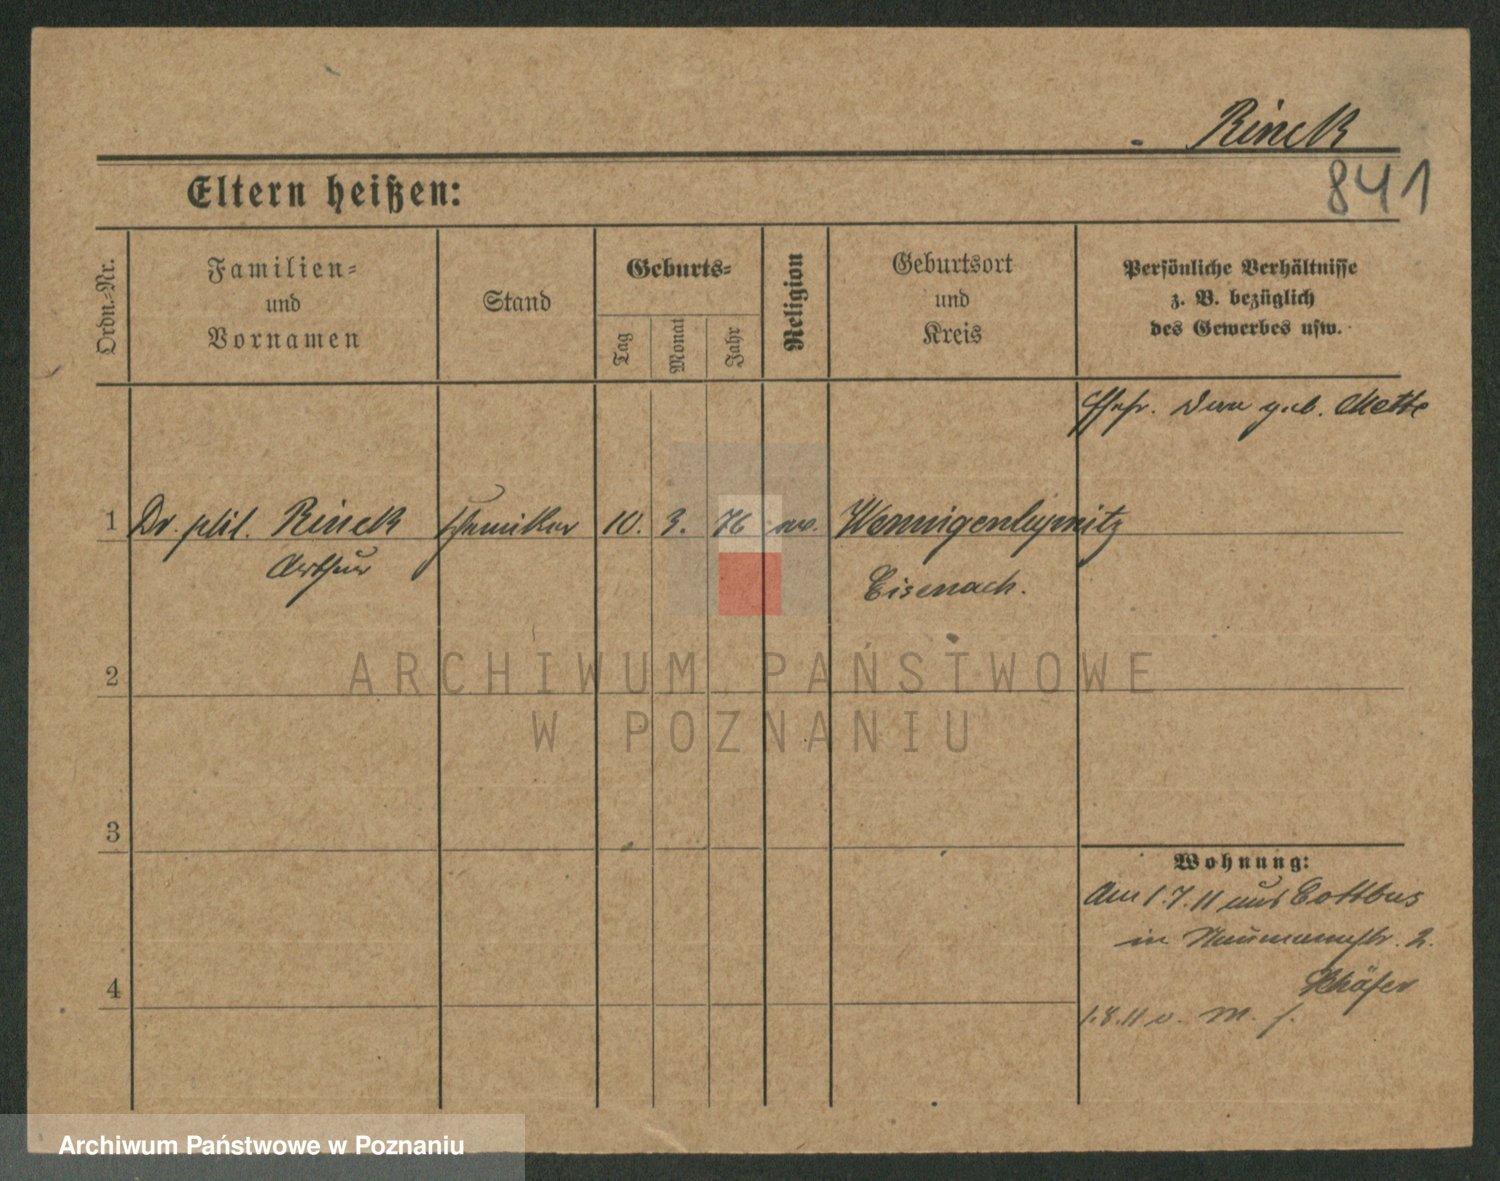 Rinck
841
Eltern heißen:
Ordn.-Nr.
Familien-
und
Vornamen
Stand
Geburts-
Tag
Monat
Jahr
Religion
Geburtsort
und
Kreis
Persönliche Verhältnisse
z. B. bezüglich
des Gewerbes usw.
Ehefr. geb. Mette
1 Dr. phil. Rinck Chemiker 10. 3. 76 ev. Wennigenlupnitz
Arthur
Eisenach.
2
ARCHIWUM PAŃSTWOWE
W POZNANIU
3
Wohnung:
Am 1.7.11 aus Cottbus
in Naumannstr. 2.
Schäfer
4
1.8.11 v. M.
Archiwum Państwowe w Poznaniu